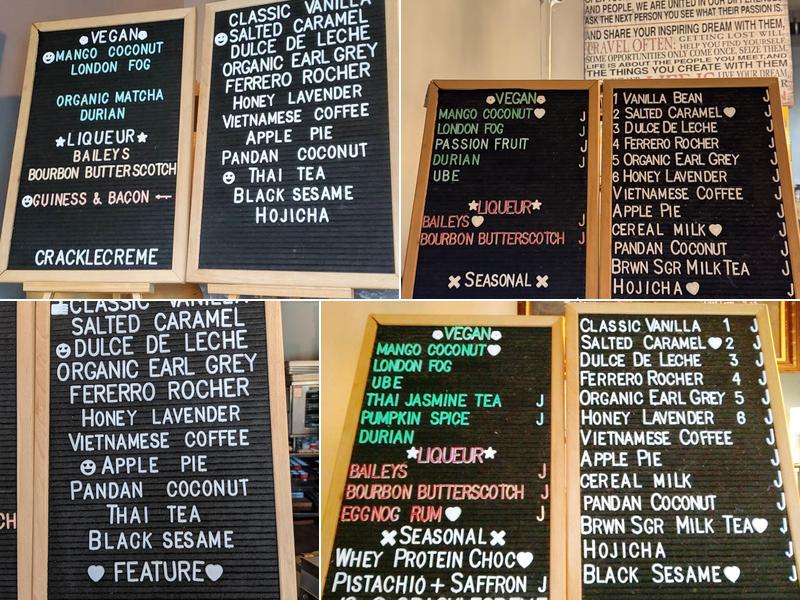 VEGAN
MANGO COCONUT
LONDON FOG
ORGANIC MATCHA
DURIAN
LIQUEUR
BAILEYS
BOURBON BUTTERSCOTCH
GUINESS & BACON
CRACKLECREME
CLASSIC VANILLA
SALTED CARAMEL
DULCE DE LECHE
ORGANIC EARL GREY
FERRERO ROCHER
HONEY LAVENDER
VIETNAMESE COFFEE
APPLE PIE
PANDAN COCONUT
THAI TEA
BLACK SESAME
HOJICHA
AND PEOPLE, WE ARE UNITED IN OUR DIFFERENCES.
ASK THE NEXT PERSON YOU SEE WHAT THEIR PASSION IS,
AND SHARE YOUR INSPIRING DREAM WITH THEM.
TRAVEL OFTEN; GETTING LOST WILL HELP YOU FIND YOURSELF.
SOME OPPORTUNITIES ONLY COME ONCE, SEIZE THEM.
LIFE IS ABOUT THE PEOPLE YOU MEET, AND
THE THINGS YOU CREATE WITH THEM
LIVE YOUR DREAM
VEGAN
MANGO COCONUT J
LONDON FOG J
PASSION FRUIT J
DURIAN J
UBE
LIQUEUR
BAILEYS J
BOURBON BUTTERSCOTCH J
SEASONAL
1 VANILLA BEAN J
2 SALTED CARAMEL J
3 DULCE DE LECHE J
4 FERRERO ROCHER J
5 ORGANIC EARL GREY J
6 HONEY LAVENDER J
VIETNAMESE COFFEE J
APPLE PIE J
CEREAL MILK J
PANDAN COCONUT J
BRWN SGR MILK TEA J
HOJICHA J
CH
CLASSIC VANILLA
SALTED CARAMEL
DULCE DE LECHE
ORGANIC EARL GREY
FERERRO ROCHER
HONEY LAVENDER
VIETNAMESE COFFEE
APPLE PIE
PANDAN COCONUT
THAI TEA
BLACK SESAME
FEATURE
VEGAN
MANGO COCONUT
LONDON FOG
UBE
THAI JASMINE TEA J
PUMPKIN SPICE J
DURIAN
LIQUEUR
BAILEYS J
BOURBON BUTTERSCOTCH J
EGGNOG RUM J
SEASONAL
WHEY PROTEIN CHOC
PISTACHIO + SAFFRON J
CLASSIC VANILLA 1 J
SALTED CARAMEL 2 J
DULCE DE LECHE 3 J
FERRERO ROCHER 4 J
ORGANIC EARL GREY 5 J
HONEY LAVENDER 6 J
VIETNAMESE COFFEE J
APPLE PIE J
CEREAL MILK J
PANDAN COCONUT J
BRWN SGR MILK TEA J
HOJICHA J
BLACK SESAME J